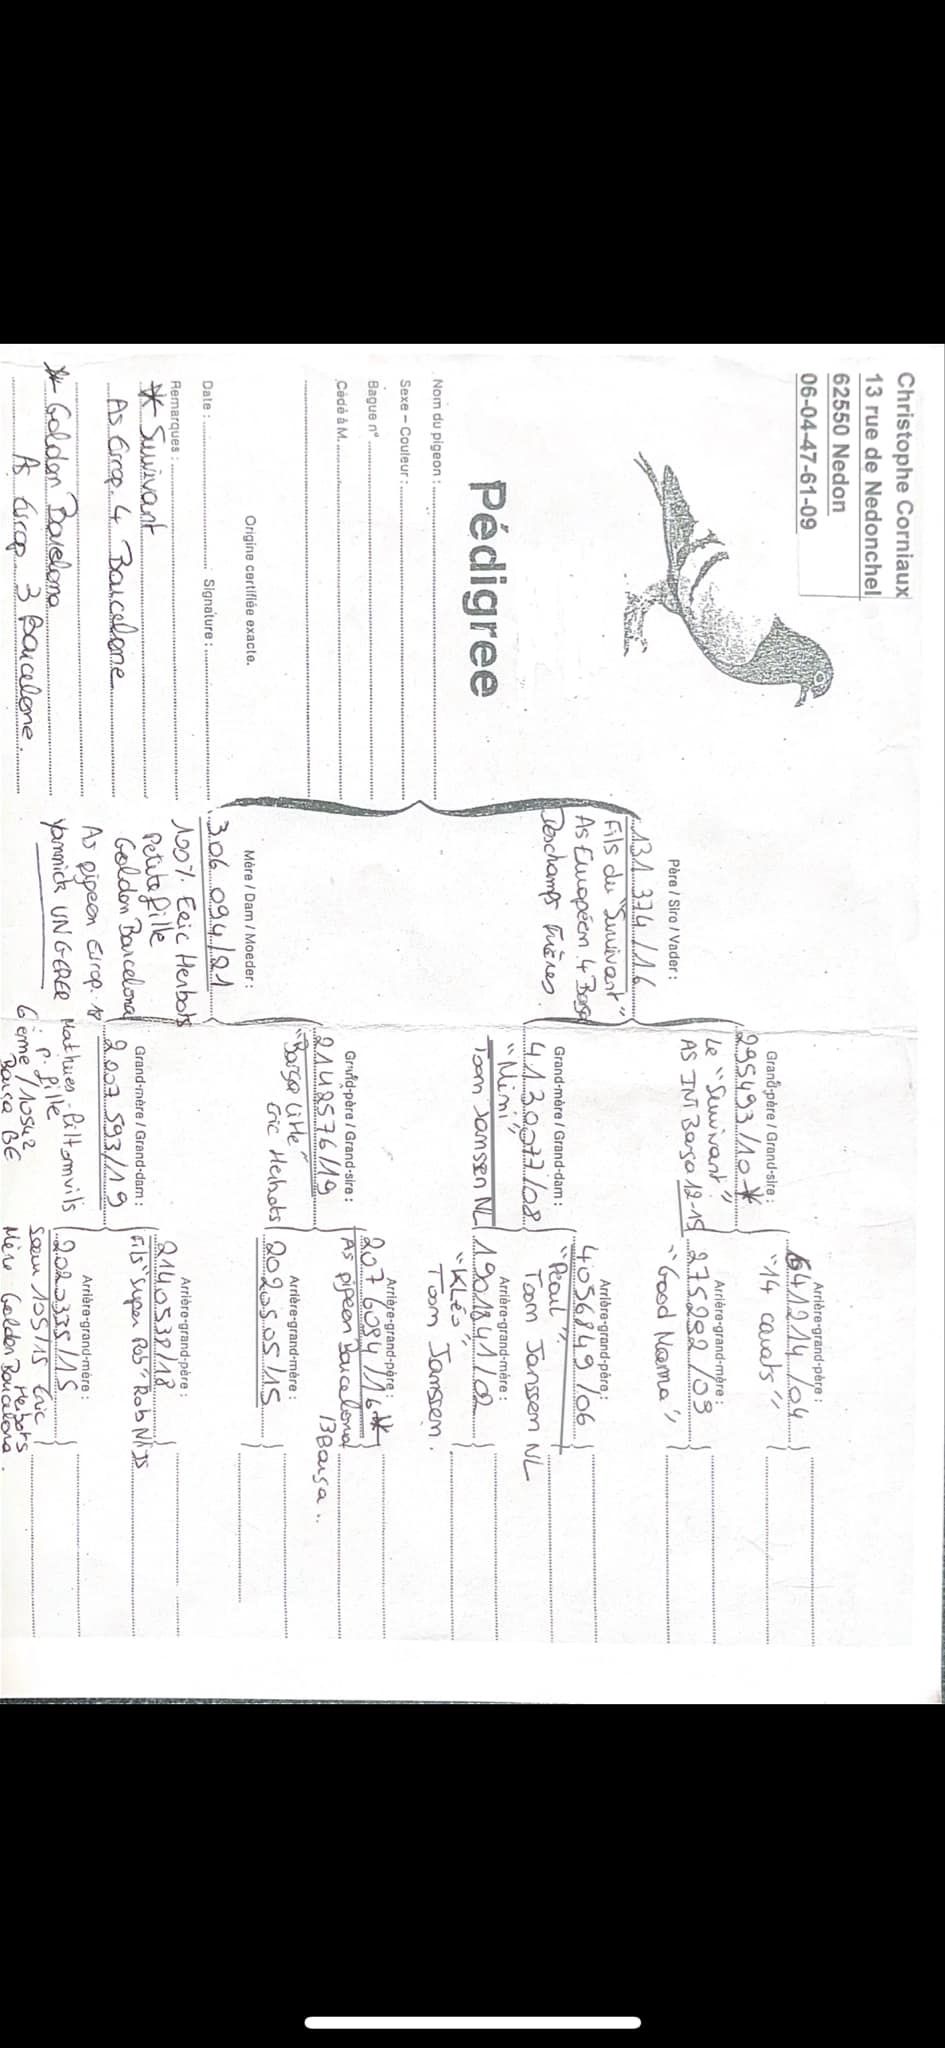 Christophe Corniaux
13 rue de Nedonchel
62550 Nedon
06-04-47-61-09
Pédigree
Nom du pigeon :
Sexe – Couleur :
Bague n°
Cédé à M.
Origine certifiée exacte.
Date : Signature :
Remarques :
* Survivant
As Europ. 4 Barcelone
* Goldon Barcelona
As Europ 3 Barcelone.
Père / Sire / Vader :
131 374 / 16
Fils du "Survivant"
As Européen 4 Barça
Deschamps Frères.
Mère / Dam / Moeder :
306 094/21
100% Eric Herbots
Petite fille
Goldon Barcelona
As pigeon Europ. 18
Yannick UNGEREE
Grand-père / Grand-sire :
295493/10 *
Le "Survivant"
AS INT Barça 12-15
Grand-mère / Grand-dam :
4130077/08
"Mimi"
Toon Janssen NL
Grand-père / Grand-sire :
2148576/19
"Barça Little"
Eric Herbots
Grand-mère / Grand-dam :
2207593/19
P. fille
6ième / 10542
Barça BE
Arrière-grand-père :
641214/04
"14 carats"
Arrière-grand-mère :
275292/09
"Good Norma"
Arrière-grand-père :
4056849/06
"Peoul"
Toon Janssen NL
Arrière-grand-mère :
1901841/02
"KLéo"
Toon Janssen.
Arrière-grand-père :
2076094/16 *
As pigeon Barcelona
13 Barça..
Arrière-grand-mère :
2022505/15
Arrière-grand-père :
2140538/18
Fils "Super Rob" Rob NIJS
Arrière-grand-mère :
2020335/15
Sœur 105/15 Eric
Herbots
Mère Goldon Barcelona.